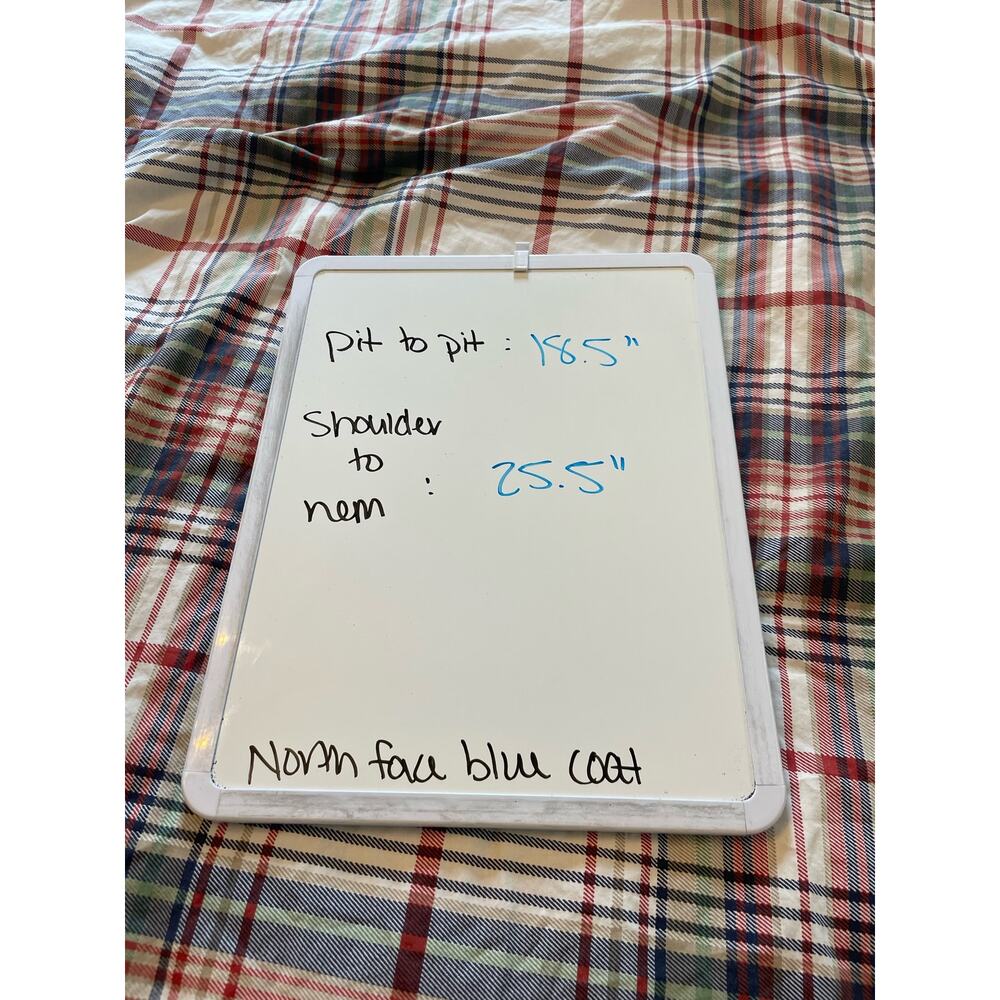 pit to pit : 18.5"
Shoulder
to
hem : 25.5"
North face blue coat